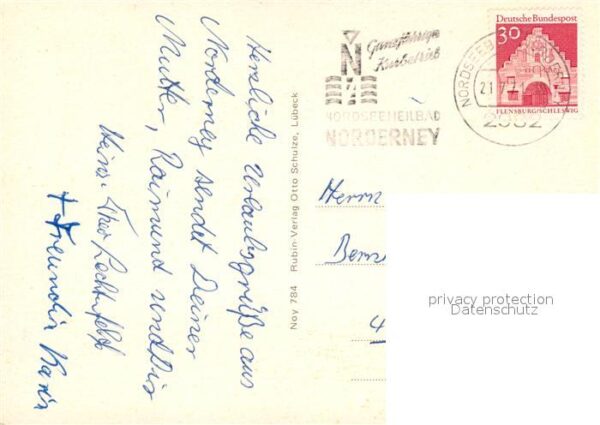 Herzliche Urlaubsgrüße aus
Norderney sendet Deiner
Mutter, Raimund und
Heinz
+ Freundin Karin
Noy 784 Rubin-Verlag Otto Schulze, Lübeck
Ganzjähriger
Kurbetrieb
N
NORDSEEHEILBAD
NORDERNEY
Deutsche Bundespost
30
FLENSBURG/SCHLESWIG
NORDSEEB
21.7.7
2982
Herrn
Bern
4
privacy protection
Datenschutz